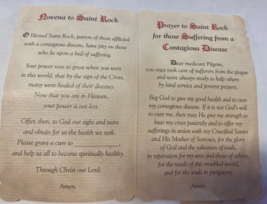 Novena to Saint Rock
O Blessed Saint Rock, patron of those afflicted
with a contagious disease, have pity on those
who lie upon a bed of suffering.
Your power was so great when you were
in this world, that by the sign of the Cross,
many were healed of their diseases.
Now that you are in Heaven,
your power is not less.
Offer, then, to God our sighs and tears
and obtain for us the health we seek.
Please grant a cure to ____________,
and help us all to become spiritually healthy.
Through Christ our Lord.
Amen.
Prayer to Saint Rock
for those Suffering from a
Contagious Disease
Dear mendicant Pilgrim,
you once took care of sufferers from the plague
and were always ready to help others
by kind service and fervent prayers.
Beg God to give me good health and to cure
my contagious disease. If it is not God's will
to cure me, then may He give me strength to
bear my cross patiently and to offer my
sufferings in union with my Crucified Savior
and His Mother of Sorrows, for the glory
of God and the salvation of souls,
in reparation for my sins and those of others,
for the needs of this troubled world,
and for the souls in purgatory.
Amen.